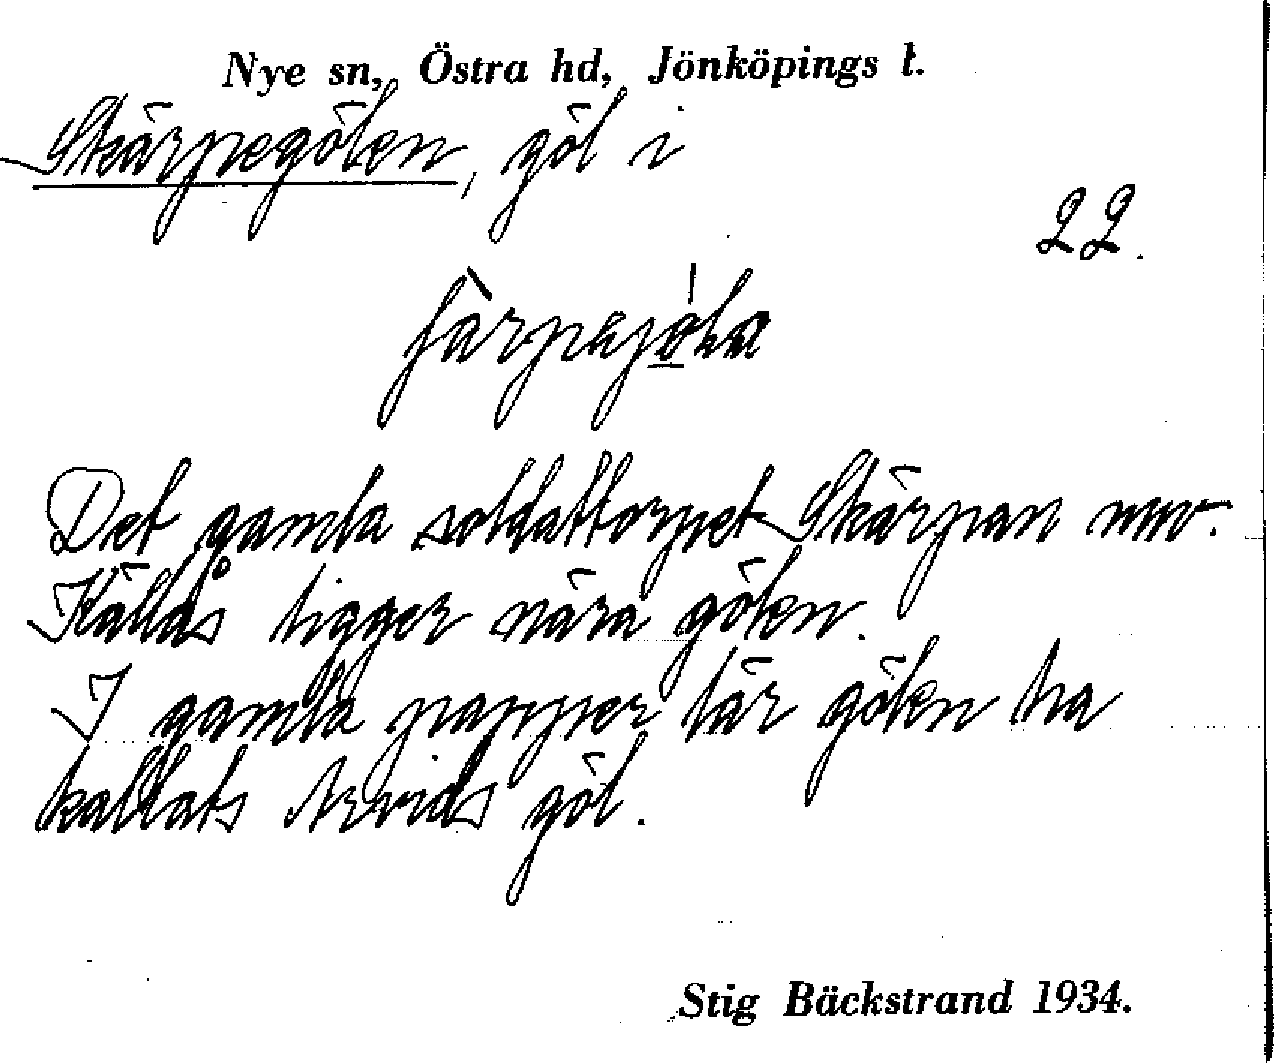 Nye sn, Östra hd, Jönköpings l.
Skärpegölen, göl i
22.
Det gamla soldattorpet Skärpan nuv.
Källås ligger nära gölen.
I gamla papper lär gölen ha
kallats Arvids göl.
Stig Bäckstrand 1934.